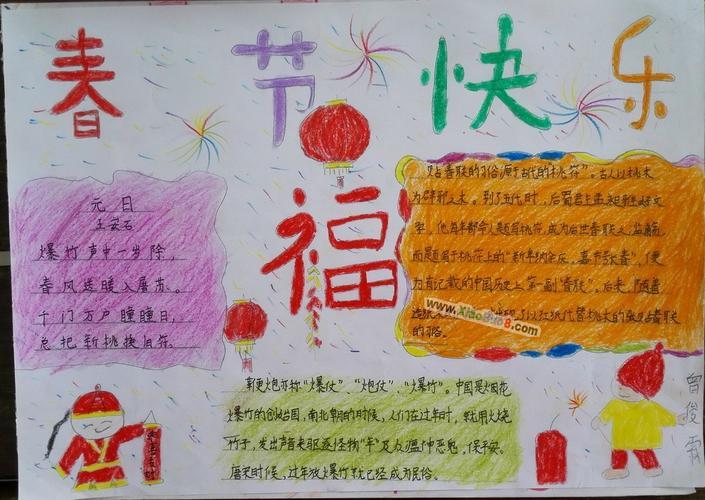 春节快乐
福
元日
王安石
爆竹声中一岁除，
春风送暖入屠苏。
千门万户曈曈日，
总把新桃换旧符。
贴春联的习俗源于古代的"桃符"。古人以桃木
为辟邪之木。到了五代时，后蜀君主孟昶雅好文
学，他每年都命人题写桃符，成为后世春联之
而题写于桃符上的"新年纳余庆，嘉节号长春"，便
为有记载的中国历史上第一副"春联"。后来，随着
造纸 了以红纸代替桃木的张贴春联
的习俗。
www.Xiaobao8.com
新更炮亦称"爆仗"、"炮仗"、"爆竹"。中国是烟花
爆竹的创始国，南北朝的时候，人们在过年时，就用火烧
竹子，发出声音来驱逐怪物"年"及众瘟神恶鬼，保平安。
唐宋时候，过年放爆竹就已经成为民俗。
曾俊霖